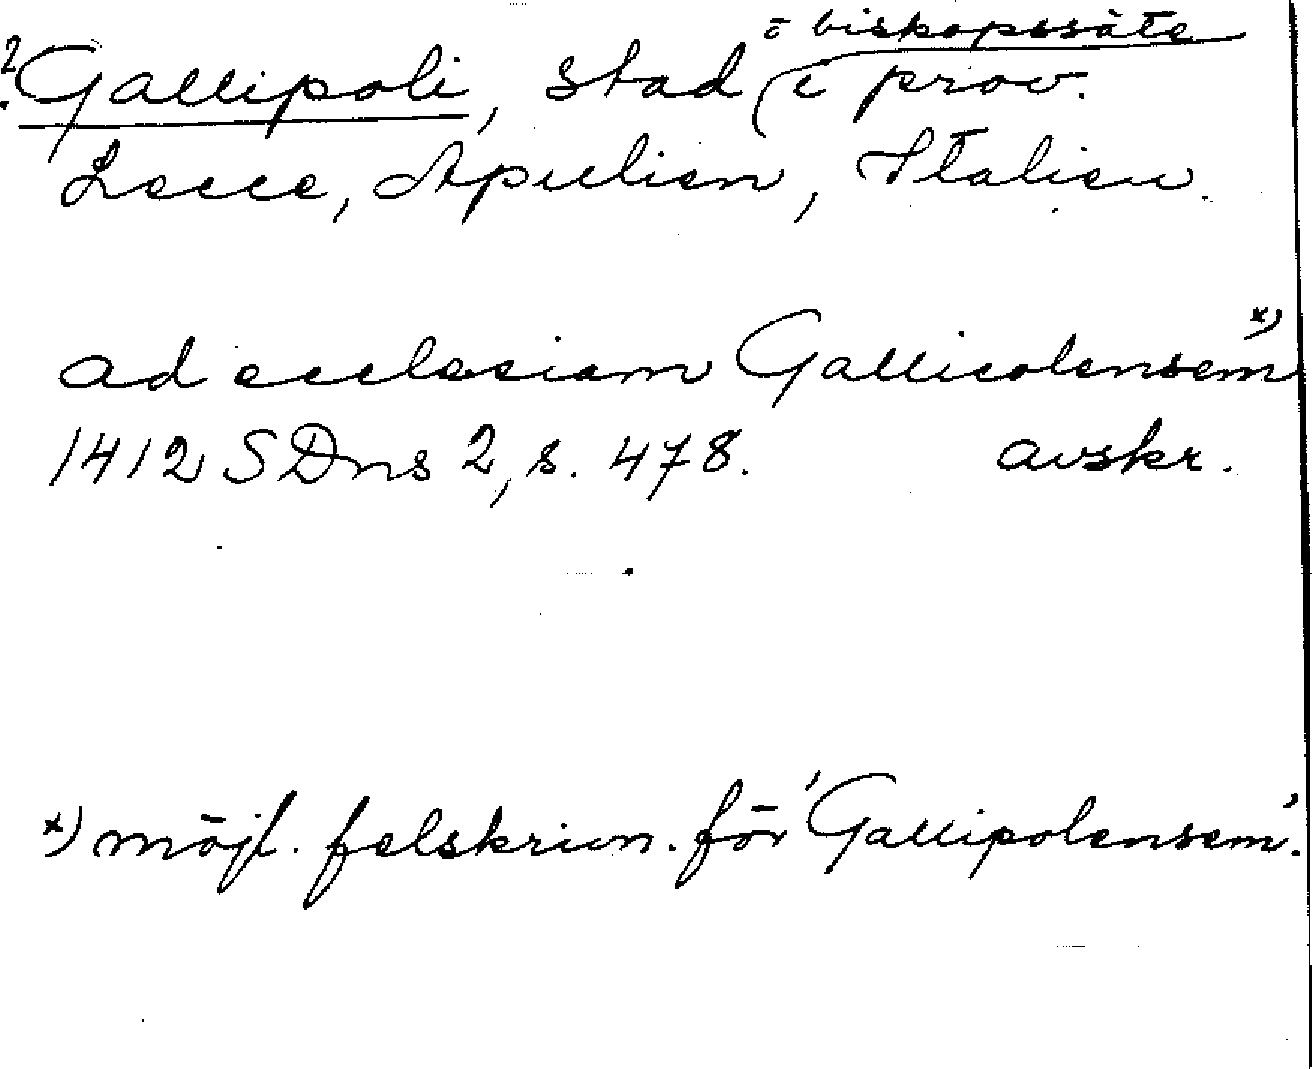 o biskopssäte
? Gallipoli, stad i prov.
Lecce, Apulien, Italien.
ad ecclesiam Gallicolensem x)
1412 SDns 2, s. 478. avskr.
x) möjl. felskrivn. för 'Gallipolensem'.